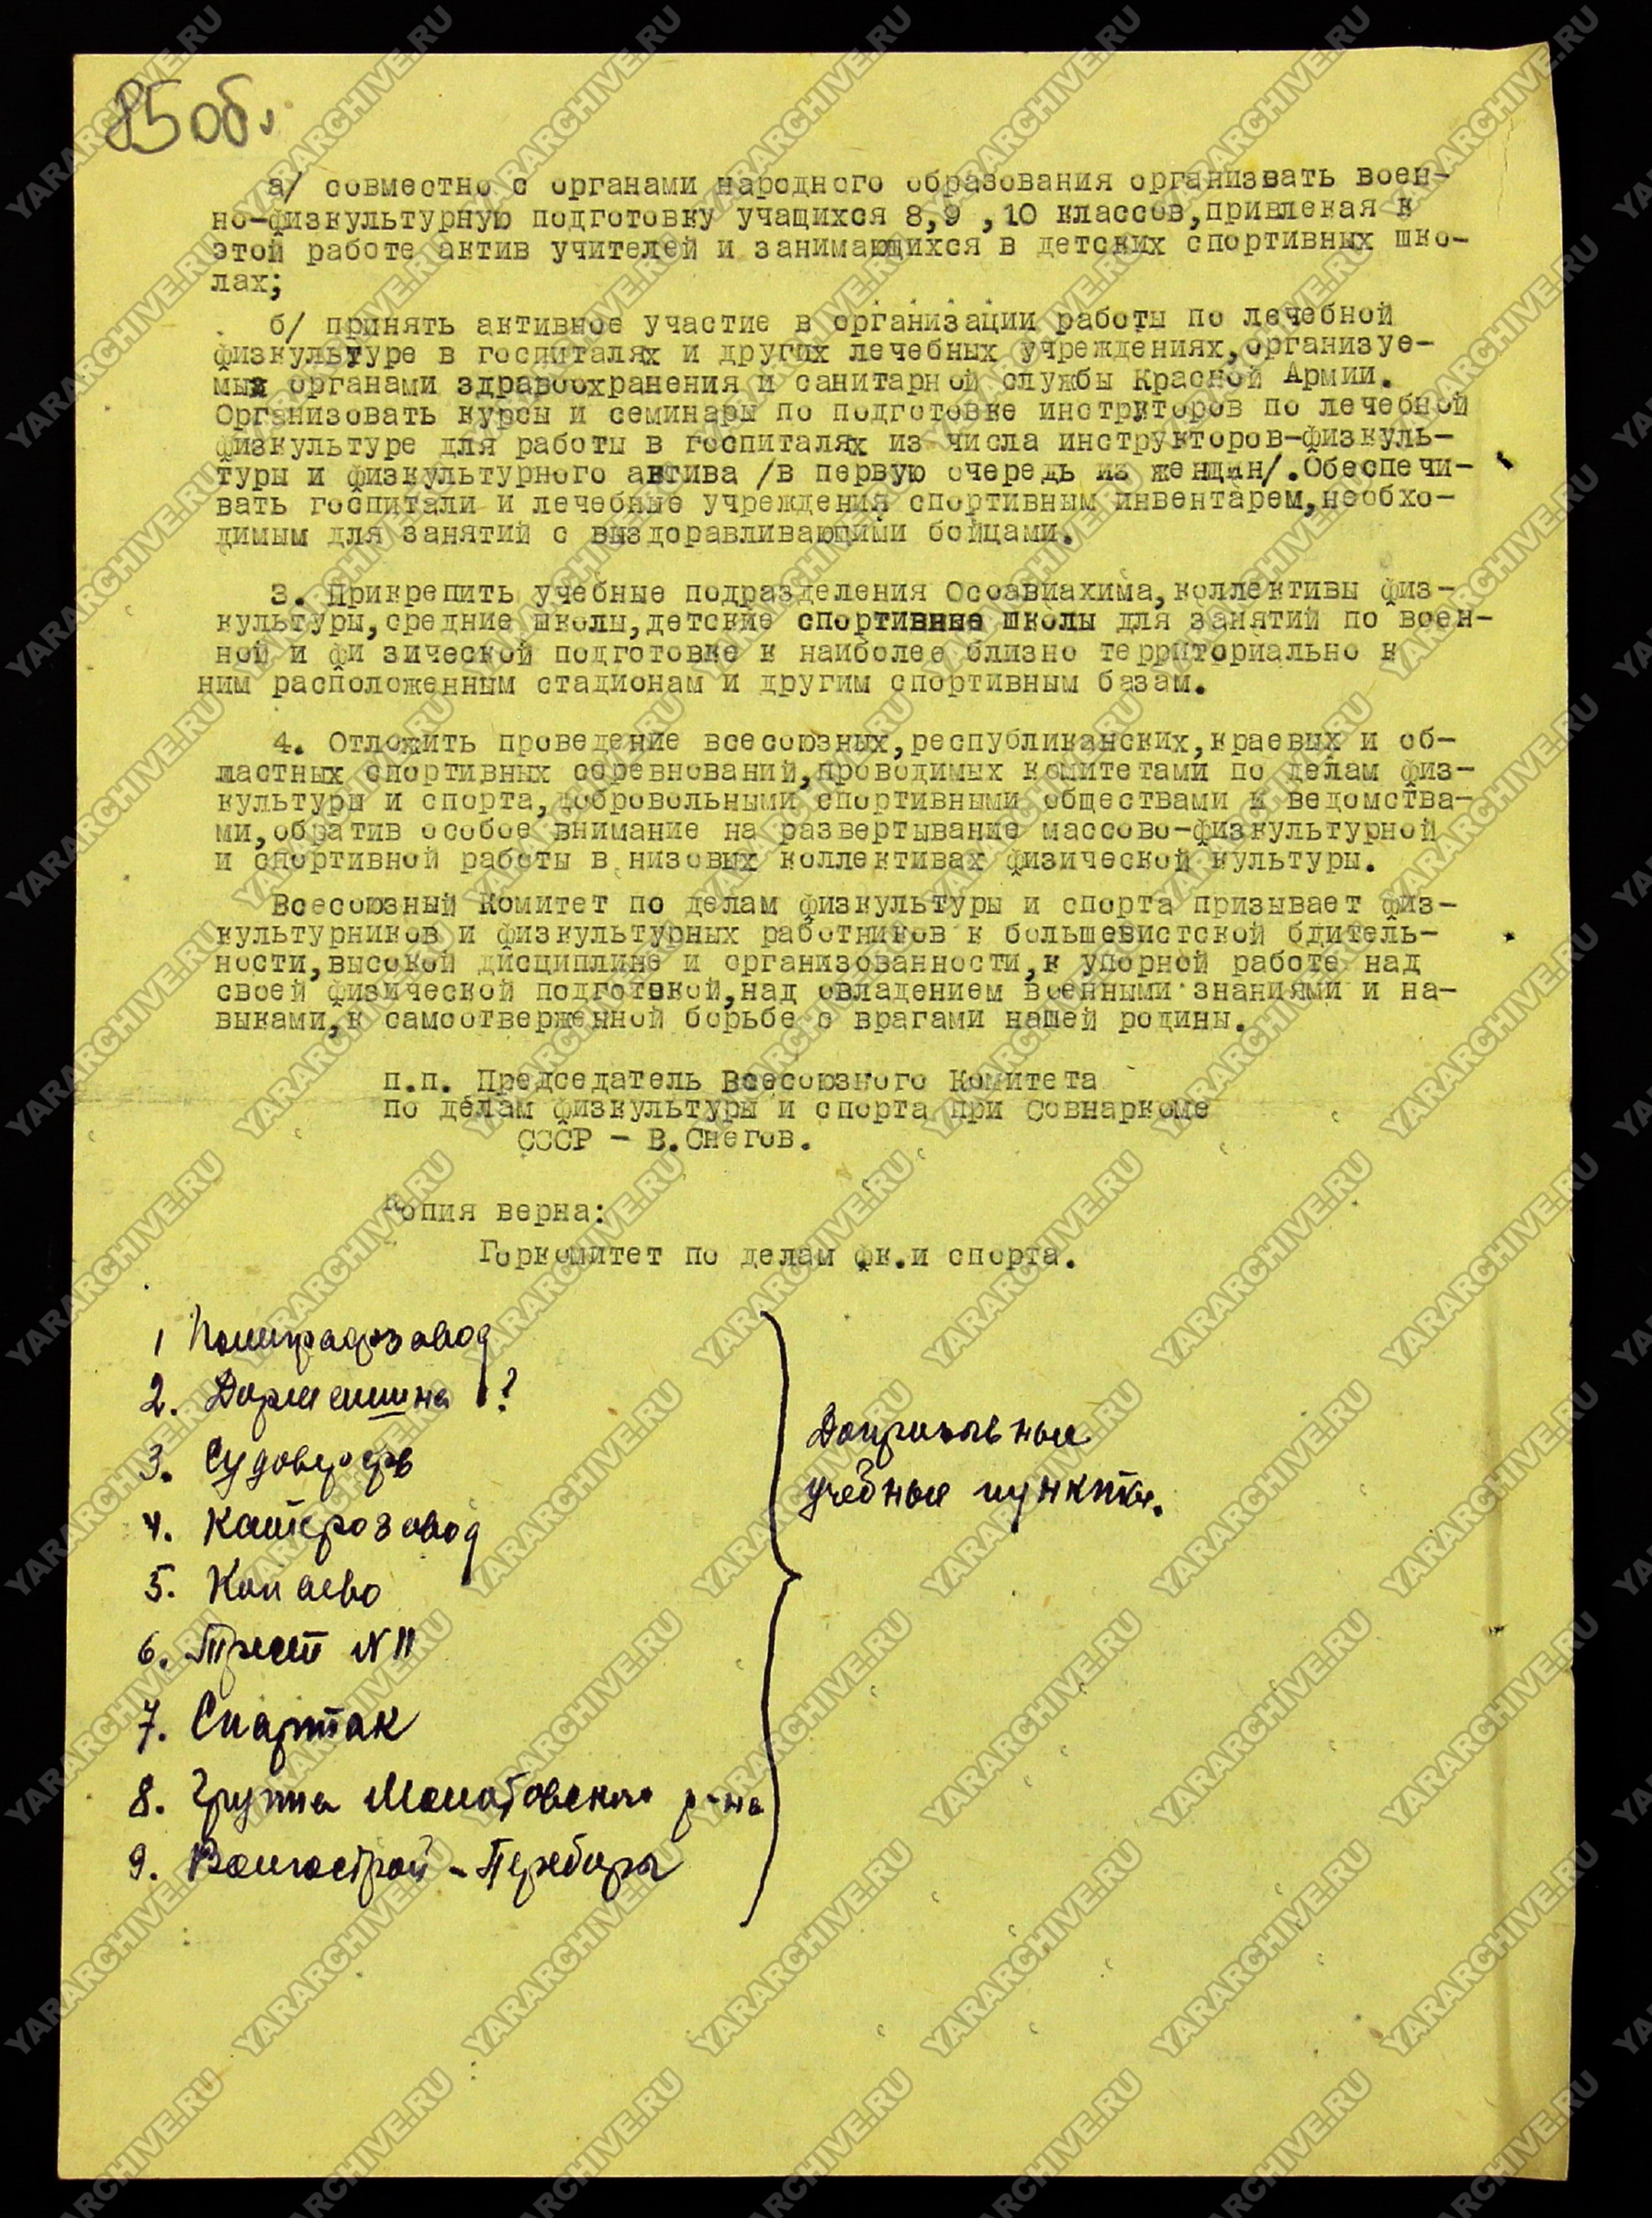 85 об.
а/ совместно с органами народного образования организвать воен-
но-физкультурную подготовку учащихся 8,9 ,10 классов,привлекая к
этой работе актив учителей и занимающихся в детских спортивных шко-
лах;
б/ принять активное участие в организации работы по лечебной
физкультуре в госпиталях и других лечебных учреждениях,организуе-
мых органами здравоохранения и санитарной службы Красной Армии.
Организовать курсы и семинары по подготовке инструкторов по лечебной
физкультуре для работы в госпиталях из числа инструкторов-физкуль-
туры и физкультурного актива /в первую очередь из женщин/.Обеспечи-
вать госпитали и лечебные учреждения спортивным инвентарем,необхо-
димым для занятий с выздоравливающими бойцами.
3. Прикрепить учебные подразделения Осоавиахима,коллективы физ-
культуры,средние школы,детские спортивные школы для занятий по воен-
ной и фи зической подготовке к наиболее близко территориально к
ним расположенным стадионам и другим спортивным базам.
4. Отложить проведение всесоюзных,республиканских,краевых и об-
ластных спортивных соревнований,проводимых комитетами по делам физ-
культуры и спорта,добровольными спортивными обществами и ведомства-
ми,обратив особое внимание на развертывание массово-физкультурной
и спортивной работы в низовых коллективах физической культуры.
Всесоюзный Комитет по делам физкультуры и спорта призывает физ-
культурников и физкультурных работников к большевистской бдитель-
ности,высокой дисциплине и организованности,к упорной работе над
своей физической подготовкой,над овладением военными знаниями и на-
выками,к самоотверженной борьбе с врагами нашей родины.
п.п. Председатель Всесоюзного Комитета
по делам физкультуры и спорта при Совнаркоме
СССР - В.Снегов.
Копия верна:
Горкомитет по делам фк.и спорта.
1 Полиграфзавод
2. Дормашина ?
3. Судоверфь
4. Катерозавод
5. Копаево
6. Трест N 11
7. Спартак
8. Группа Мологовского р-на
9. Волгострой - Переборы
Допризывные
учебные пункты.
YARARCHIVE.RU